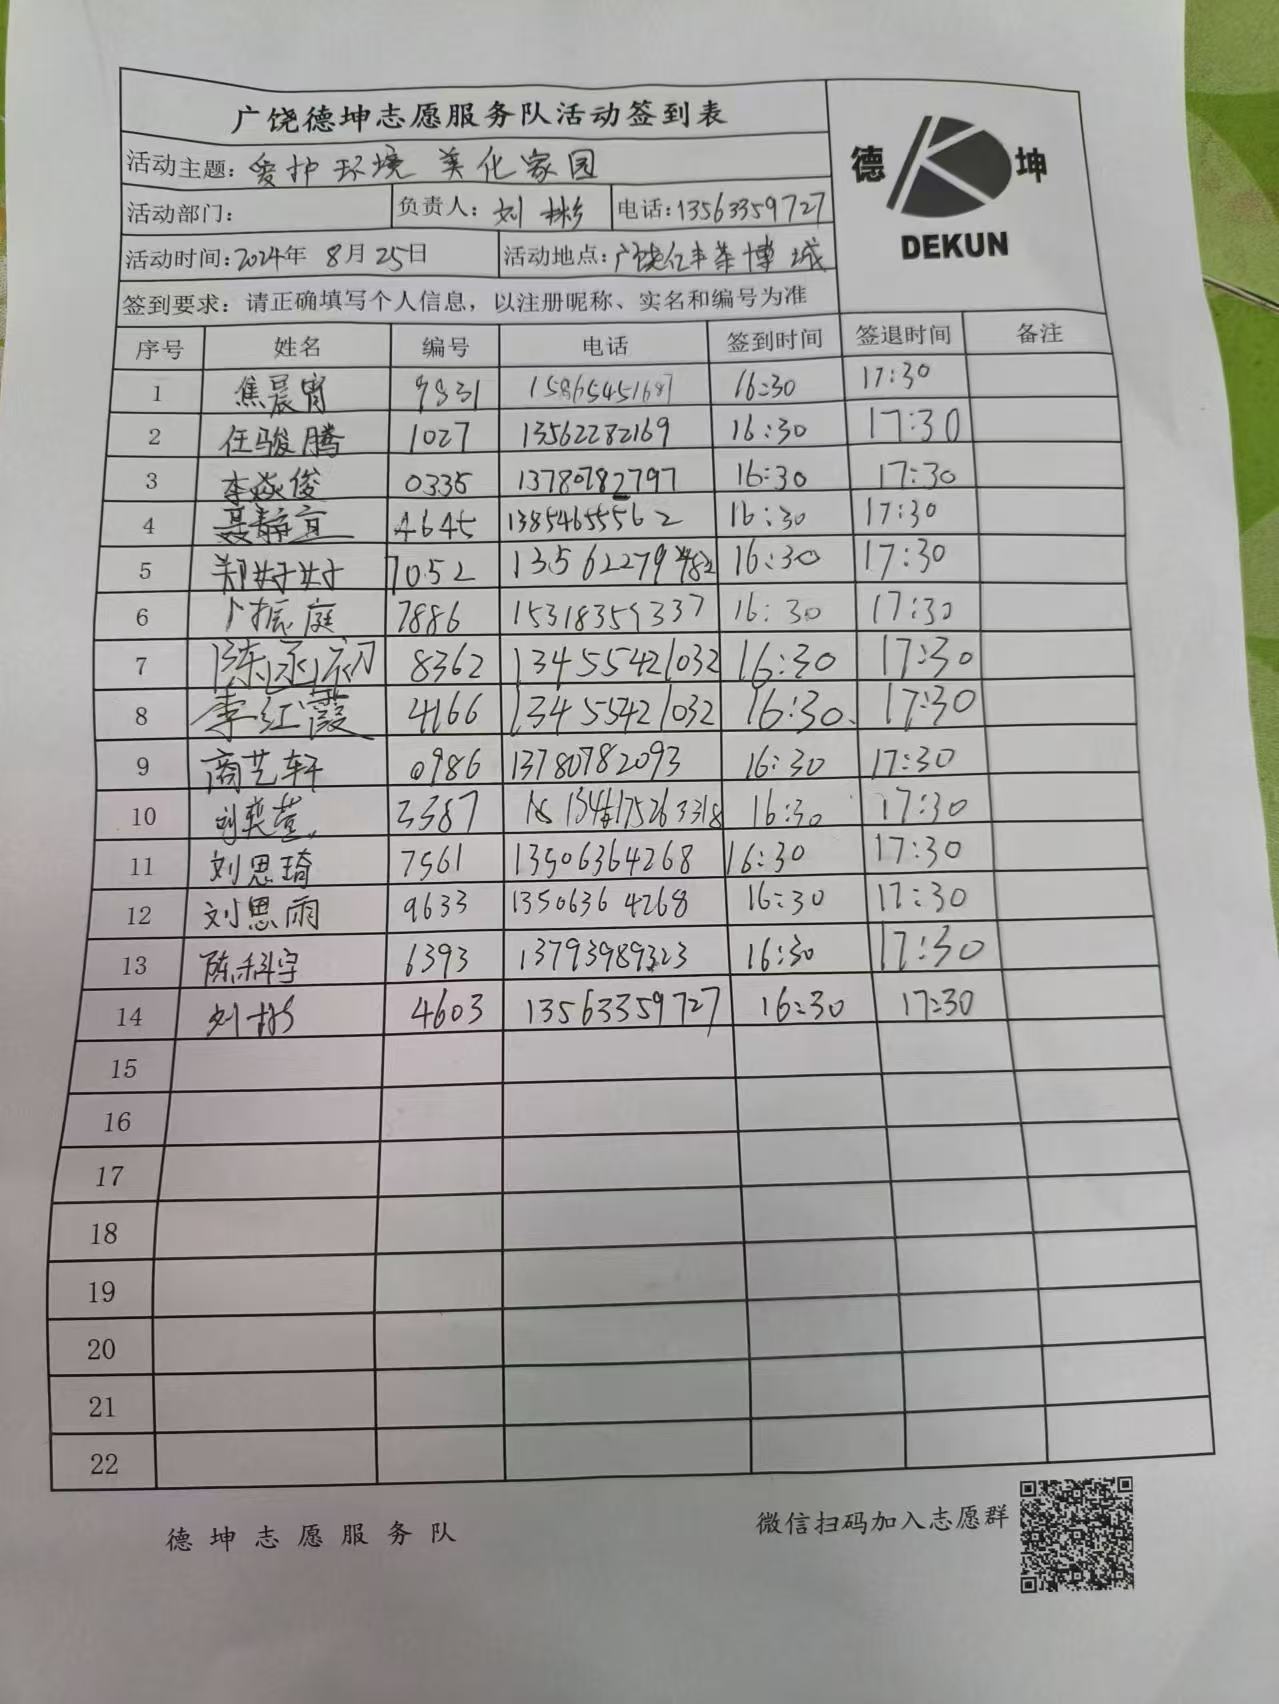 广饶德坤志愿服务队活动签到表
德 坤
DEKUN
活动主题：爱护环境 美化家园
活动部门： 负责人：刘彬 电话：13563359727
活动时间：2024年 8月25日 活动地点：广饶亿丰 博城
签到要求：请正确填写个人信息，以注册昵称、实名和编号为准
序号 姓名 编号 电话 签到时间 签退时间 备注
1 焦晨宵 9831 15865451687 16:30 17:30
2 任骏腾 1027 13562282169 16:30 17:30
3 李焱俊 0335 13780782797 16:30 17:30
4 聂静宜 4645 13854655562 16:30 17:30
5 郑好好 7052 13562279482 16:30 17:30
6 卜振庭 7886 15318359337 16:30 17:30
7 8362 13455421032 16:30 17:30
8 李红霞 4166 13455421032 16:30 17:30
9 商艺轩 0986 13780782093 16:30 17:30
10 刘奕萱 3387 16:30 17:30
11 刘思琦 7561 13506364268 16:30 17:30
12 刘思雨 9633 13506364268 16:30 17:30
13 陈科宇 6393 13793989323 16:30 17:30
14 刘彬 4603 13563359727 16:30 17:30
15
16
17
18
19
20
21
22
德坤志愿服务队
微信扫码加入志愿群